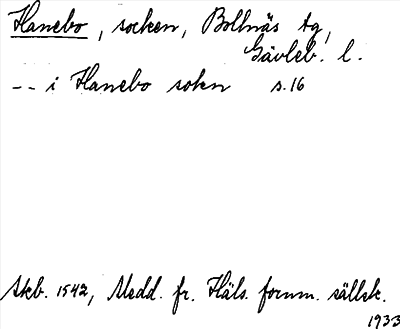 Hanebo, socken, Bollnäs tg,
Gävleb. l.
-- i Hanebo sokn s. 16
Skb. 1542, Medd. fr. Häls. fornm. sällsk.
1933